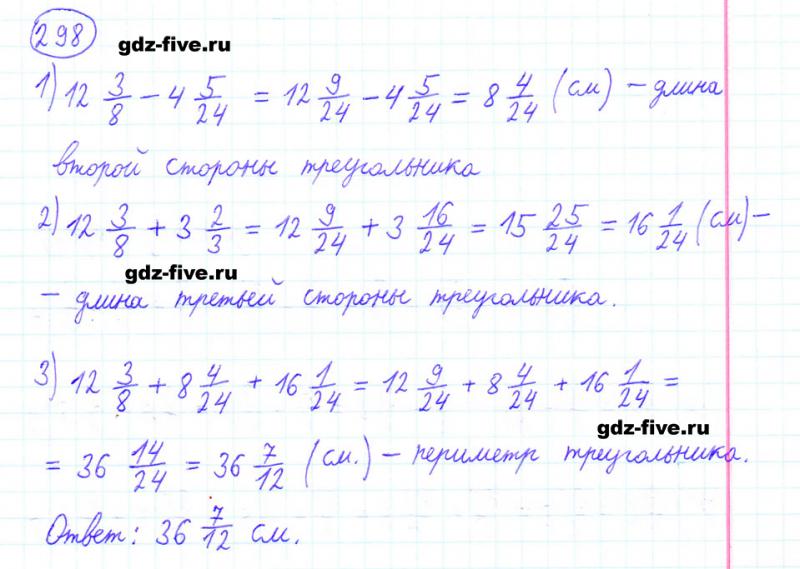 298 gdz-five.ru
1) 12 3/8 − 4 5/24 = 12 9/24 − 4 5/24 = 8 4/24 (см) − длина
второй стороны треугольника
2) 12 3/8 + 3 2/3 = 12 9/24 + 3 16/24 = 15 25/24 = 16 1/24 (см) −
gdz-five.ru
− длина третьей стороны треугольника.
3) 12 3/8 + 8 4/24 + 16 1/24 = 12 9/24 + 8 4/24 + 16 1/24 =
gdz-five.ru
= 36 14/24 = 36 7/12 (см.) − периметр треугольника.
Ответ: 36 7/12 см.